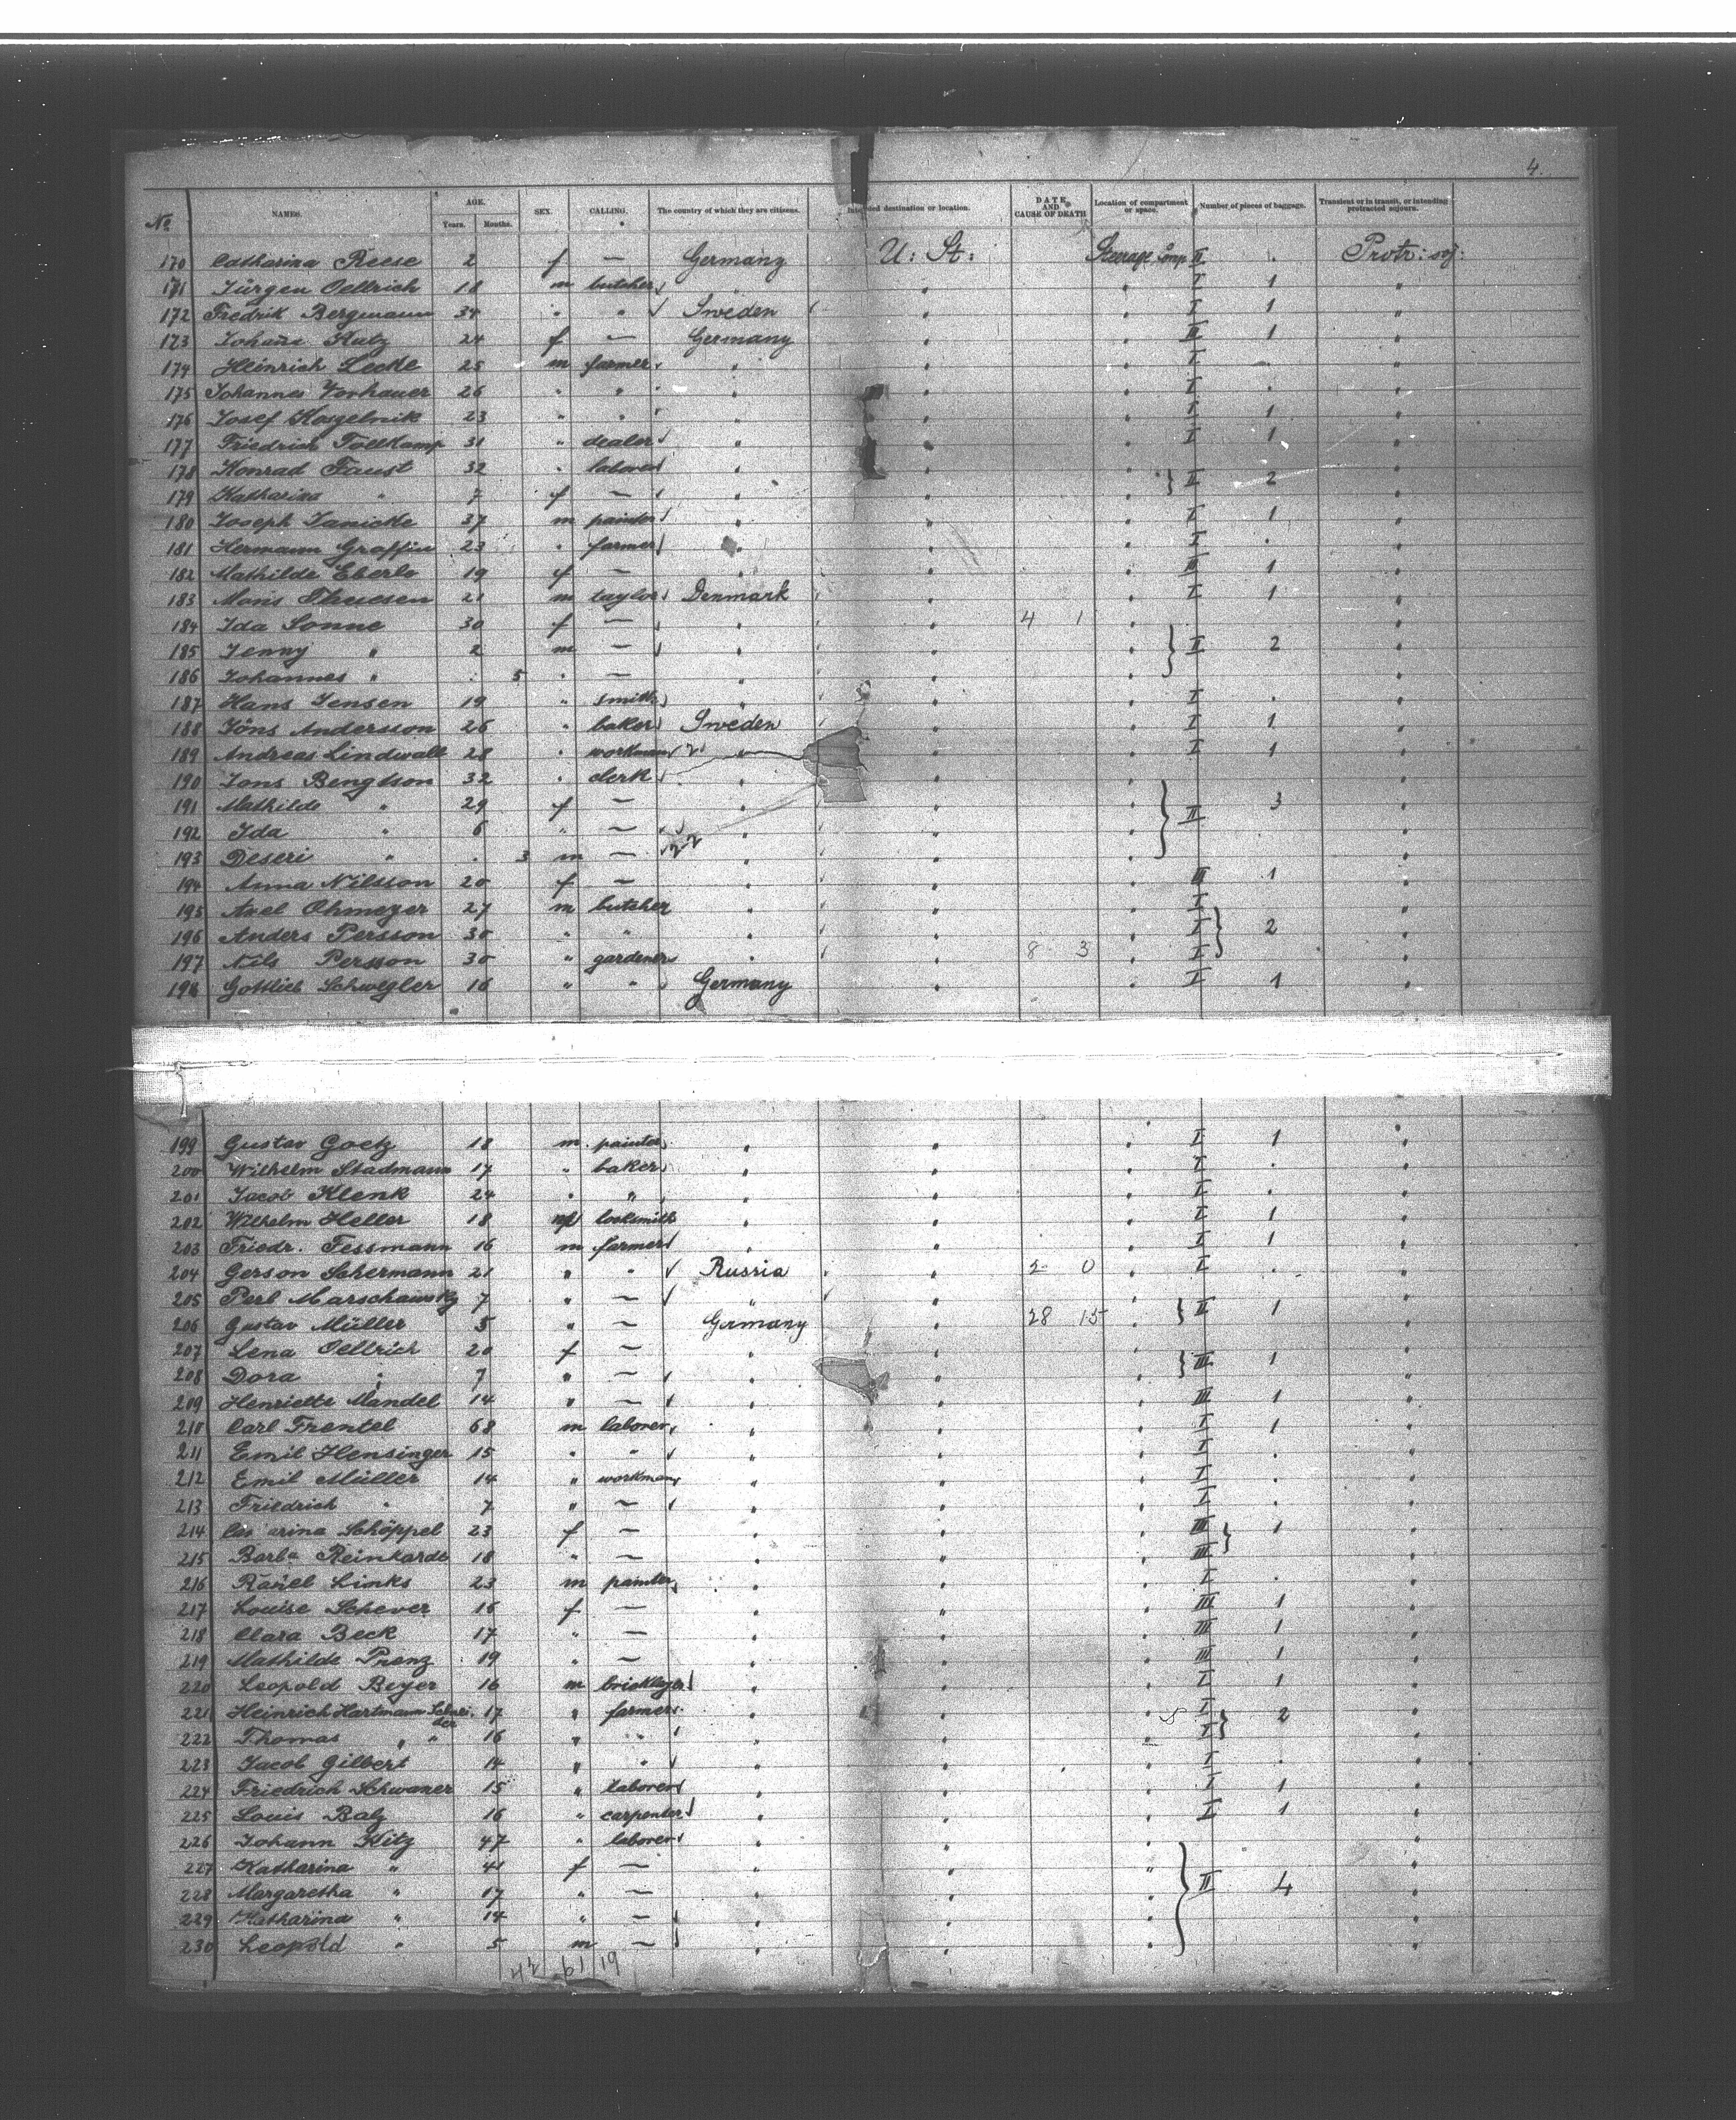 4.
No. NAMES. AGE. Years. Months. SEX. CALLING. The country of which they are citizens. Intended destination or location. DATE AND CAUSE OF DEATH Location of compartment or space. Number of pieces of baggage. Transient or in transit, or intending protracted sojourn.
170 Catharina Reese 2 f — Germany U: St: Steerage comp II . Protr: soj:
171 Jürgen Oellrich 18 m butcher " " " I 1 "
172 Fredrik Bergmann 34 " " Sweden " " I 1 "
173 Johana Kutz 24 f — Germany " " III 1 "
174 Heinrich Lecke 25 m farmer " " " I . "
175 Johannes Vorhauer 26 " " " " " I . "
176 Josef Koszelnik 23 " " " " " I 1 "
177 Friedrich Tollkamp 31 " dealer " " " I 1 "
178 Konrad Faust 32 " laborer " " " } II 2 "
179 Katharina " 7 f — " " " "
180 Joseph Janicke 37 m painter " " " I 1 "
181 Hermann Graffin 23 " farmer " " " I . "
182 Mathilde Eberle 19 f — " " " III 1 "
183 Moris Thuesen 21 m taylor Denmark " " I 1 "
184 Ida Sonne 30 f — " " 4 1 " "
185 Jenny " 2 m — " " " } II 2 "
186 Johannes " . 5 " — " " " "
187 Hans Jensen 19 " smith " " " I . "
188 Jöns Andersson 26 " baker Sweden " " I 1 "
189 Andreas Lindwall 28 " workman " " " I 1 "
190 Jons Bengtson 32 " clerk " " " "
191 Mathilde " 29 f — " " " } II 3 "
192 Ida " 6 " — " " " "
193 Deseri " . 3 m — " " " "
194 Anna Nilsson 20 f — " " " III 1 "
195 Axel Ohmeyer 27 m butcher " " " I "
196 Anders Persson 30 " " " " " I } 2 "
197 Nils Persson 30 " gardener " " 8 3 " I "
198 Gottlieb Schwegler 16 " " Germany " " I 1 "
199 Gustav Goetz 18 m painter " " " I 1 "
200 Wilhelm Stadmann 17 " baker " " " I . "
201 Jacob Klenk 24 " " " " " I . "
202 Wilhelm Heller 18 m locksmith " " " I 1 "
203 Friedr. Fessmann 16 m farmer " " " I 1 "
204 Gerson Schermann 21 " " Russia " 2 0 " I . "
205 Perl Marschawsky 7 " — " " " } II 1 "
206 Gustav Müller 5 " — Germany " 28 15 " "
207 Lena Oellrich 20 f — " " " } III 1 "
208 Dora " 7 " — " " " "
209 Henriette Mandel 14 " — " " " III 1 "
210 Carl Frentel 68 m laborer " " " I 1 "
211 Emil Hensinger 15 " " " " " I . "
212 Emil Müller 14 " workman " " " I . "
213 Friedrich " 7 " — " " " I . "
214 Ca arina Schöppel 23 f — " " " III } 1 "
215 Barba Reinhardt 18 " — " " " III "
216 Links 23 m painter " " " I . "
217 Louise Schever 16 f — " " " III 1 "
218 Clara Beck 17 " — " " " III 1 "
219 Mathilde Prenz 19 " — " " " III 1 "
220 Leopold Beyer 16 m bricklayer " " " I 1 "
221 Heinrich Hartmann Schneider 17 " farmer " " " I } 2 "
222 Thomas " " 16 " " " " " I "
223 Jacob Gilbert 14 " " " " " I . "
224 Friedrich Schwaner 15 " laborer " " " I 1 "
225 Louis Balz 16 " carpenter " " " I 1 "
226 Johann Kitz 47 " laborer " " " "
227 Katharina " 41 f — " " " "
228 Margaretha " 17 " — " " " } II 4 "
229 Katharina " 14 " — " " " "
230 Leopold " 5 m — " " " "
42 61 19